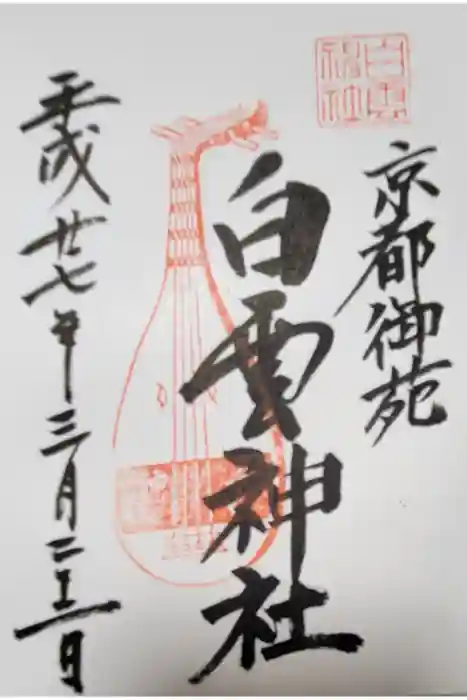 白雲神社
京都御苑
白雲神社
平成廿七年三月二十日